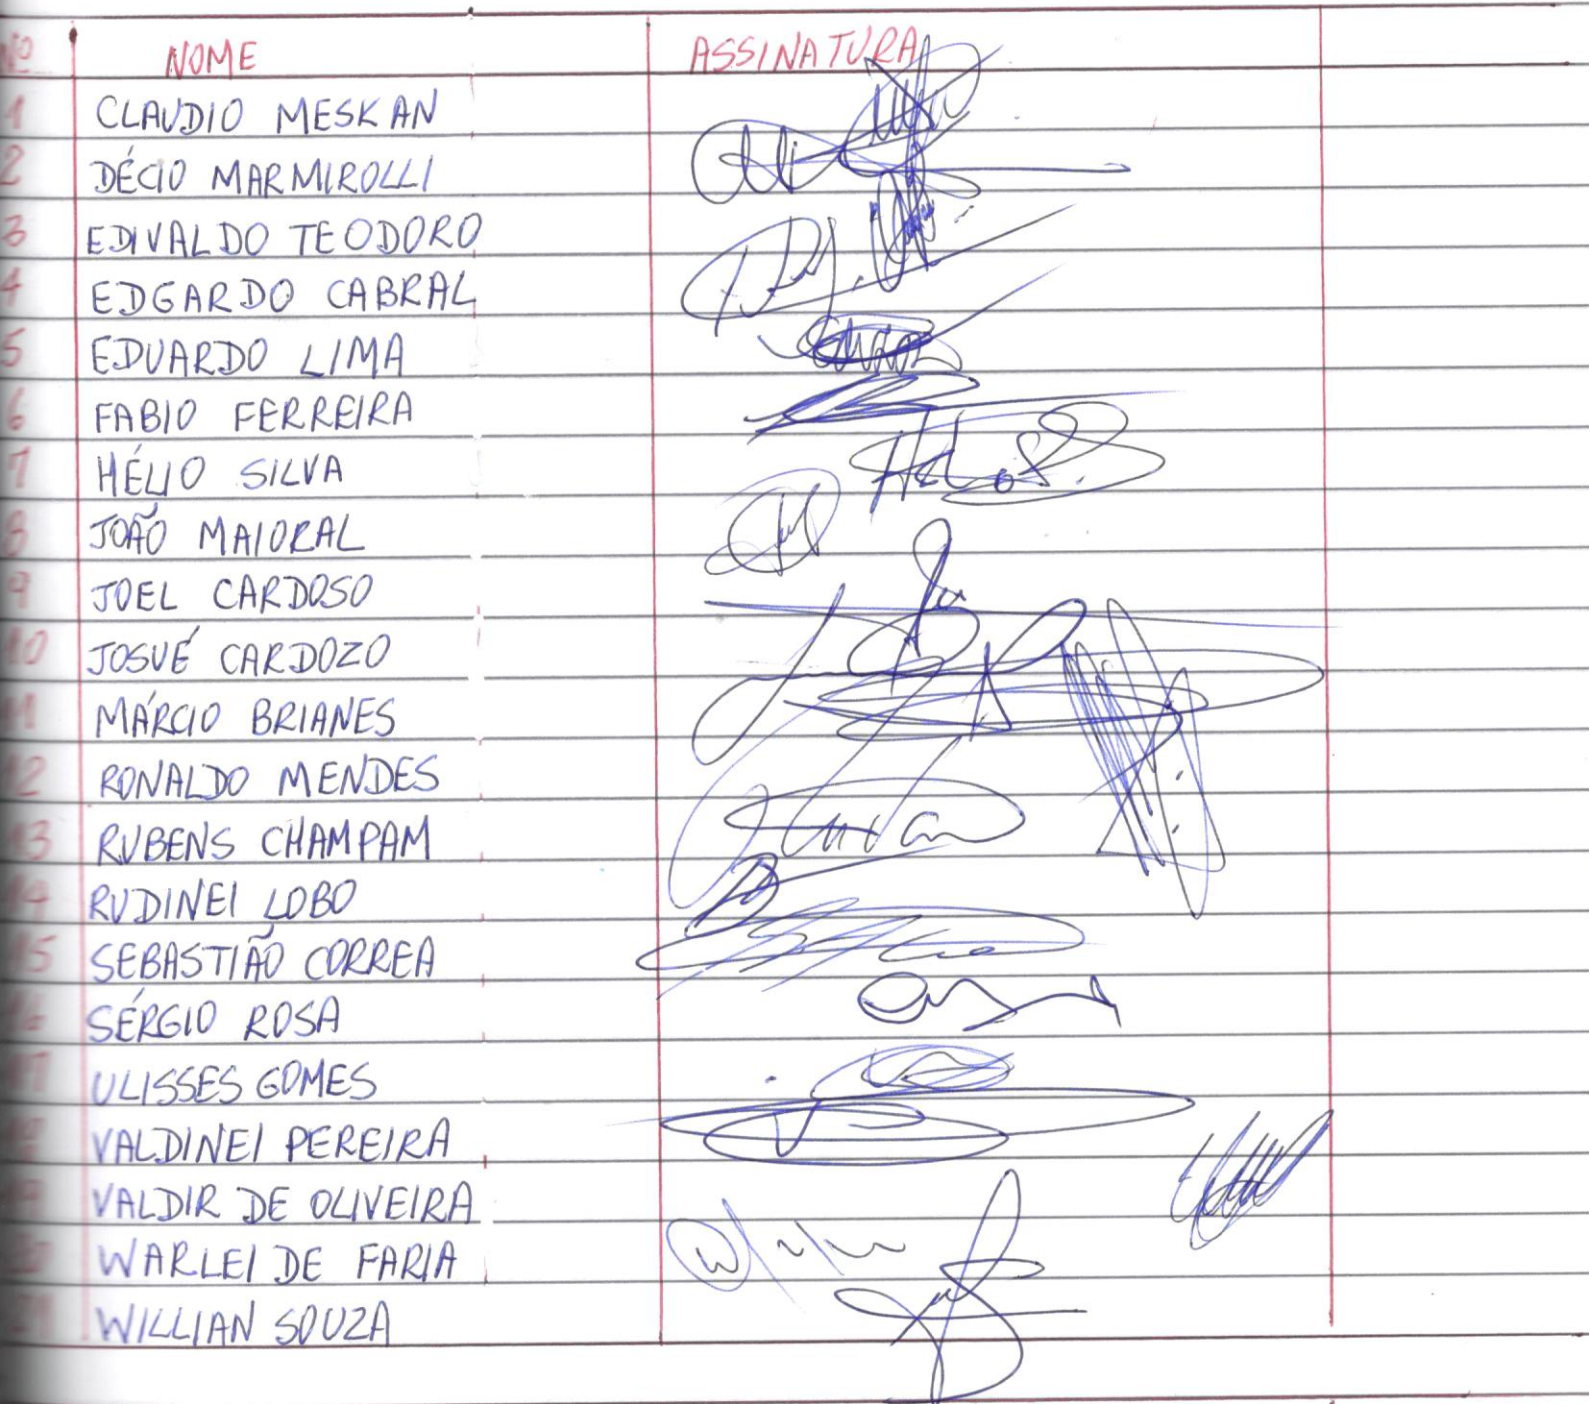 Nº NOME ASSINATURA
1 CLAUDIO MESKAN
2 DÉCIO MARMIROLLI
3 EDIVALDO TEODORO
4 EDGARDO CABRAL
5 EDUARDO LIMA
6 FABIO FERREIRA
7 HÉLIO SILVA
8 JOÃO MAIORAL
9 JOEL CARDOSO
10 JOSUÉ CARDOZO
11 MÁRCIO BRIANES
12 RONALDO MENDES
13 RUBENS CHAMPAM
14 RUDINEI LOBO
15 SEBASTIÃO CORREA
16 SÉRGIO ROSA
17 ULISSES GOMES
18 VALDINEI PEREIRA
19 VALDIR DE OLIVEIRA
20 WARLEI DE FARIA
21 WILLIAN SOUZA